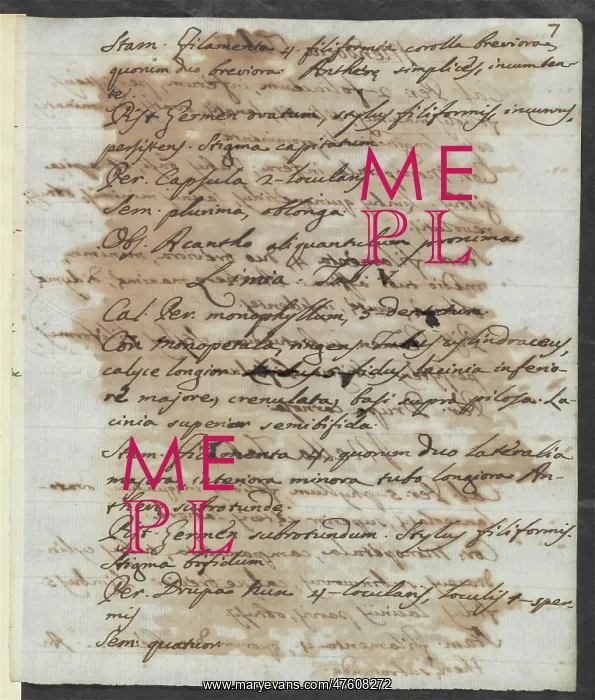 7
Stam. Filamenta 4. filiformia corolla breviora,
quorum duo breviora. Antherę simplices, incumben-
tes.
Pist. Germen ovatum, stylus filiformis, incurvus,
persistens. Stigma capitatum.
Per. Capsula 2-locularis
Sem. plurima, oblonga
Obs. Acantho aliquantulum proxima
V
Cal. Per. monophyllum, 5-dentatum.
Cor. monopetala, ringens. Tubus cylindraceus,
calyce longior lacinia inferio-
re majore, crenulata, basi supra pilosa. La-
cinia superior semibifida.
Stam. Filamenta 4. quorum duo lateralia
interiora minora tubo longiora. An-
therę subrotundę.
Pist. Germen subrotundum. Stylus filiformis.
Stigma bifidum
Per. Drupa. Nux 4-locularis, loculis 1-sper-
mis
Sem. quatuor
ME
PL
ME
PL
www.maryevans.com/47608272